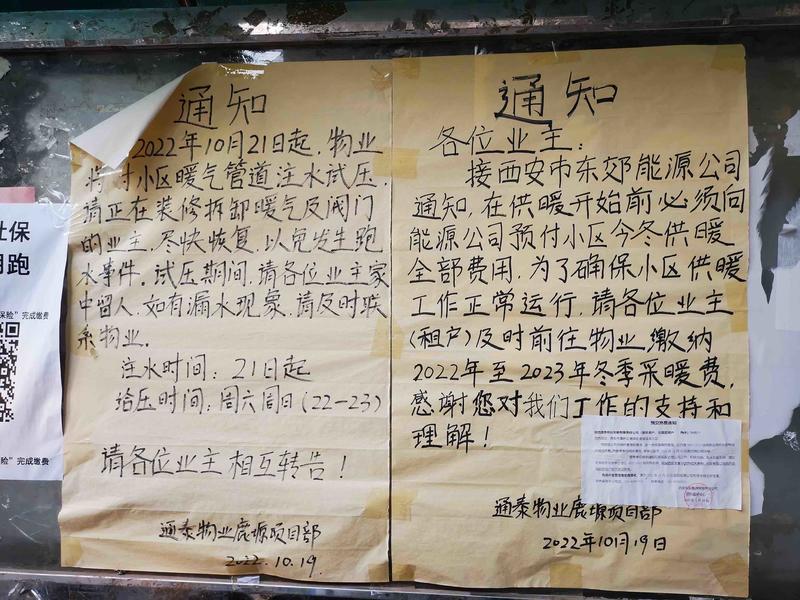 通知
2022年10月21日起,物业
将对小区暖气管道注水试压,
请正在装修拆卸暖气及阀门
的业主,尽快恢复,以免发生跑
水事件。试压期间,请各位业主家
中留人,如有漏水现象,请及时联
系物业。
注水时间:21日起
给压时间:周六周日(22-23)
请各位业主相互转告!
通泰物业鹿塬项目部
2022.10.19.
通知
各位业主:
接西安市东郊能源公司
通知,在供暖开始前必须向
能源公司预付小区今冬供暖
全部费用,为了确保小区供暖
工作正常运行,请各位业主
(租户)及时前往物业,缴纳
2022年至2023年冬季采暖费,
感谢您对我们工作的支持和
理解!
通泰物业鹿塬项目部
2022年10月19日
社保
跑
保险”完成缴费
险”完成缴费